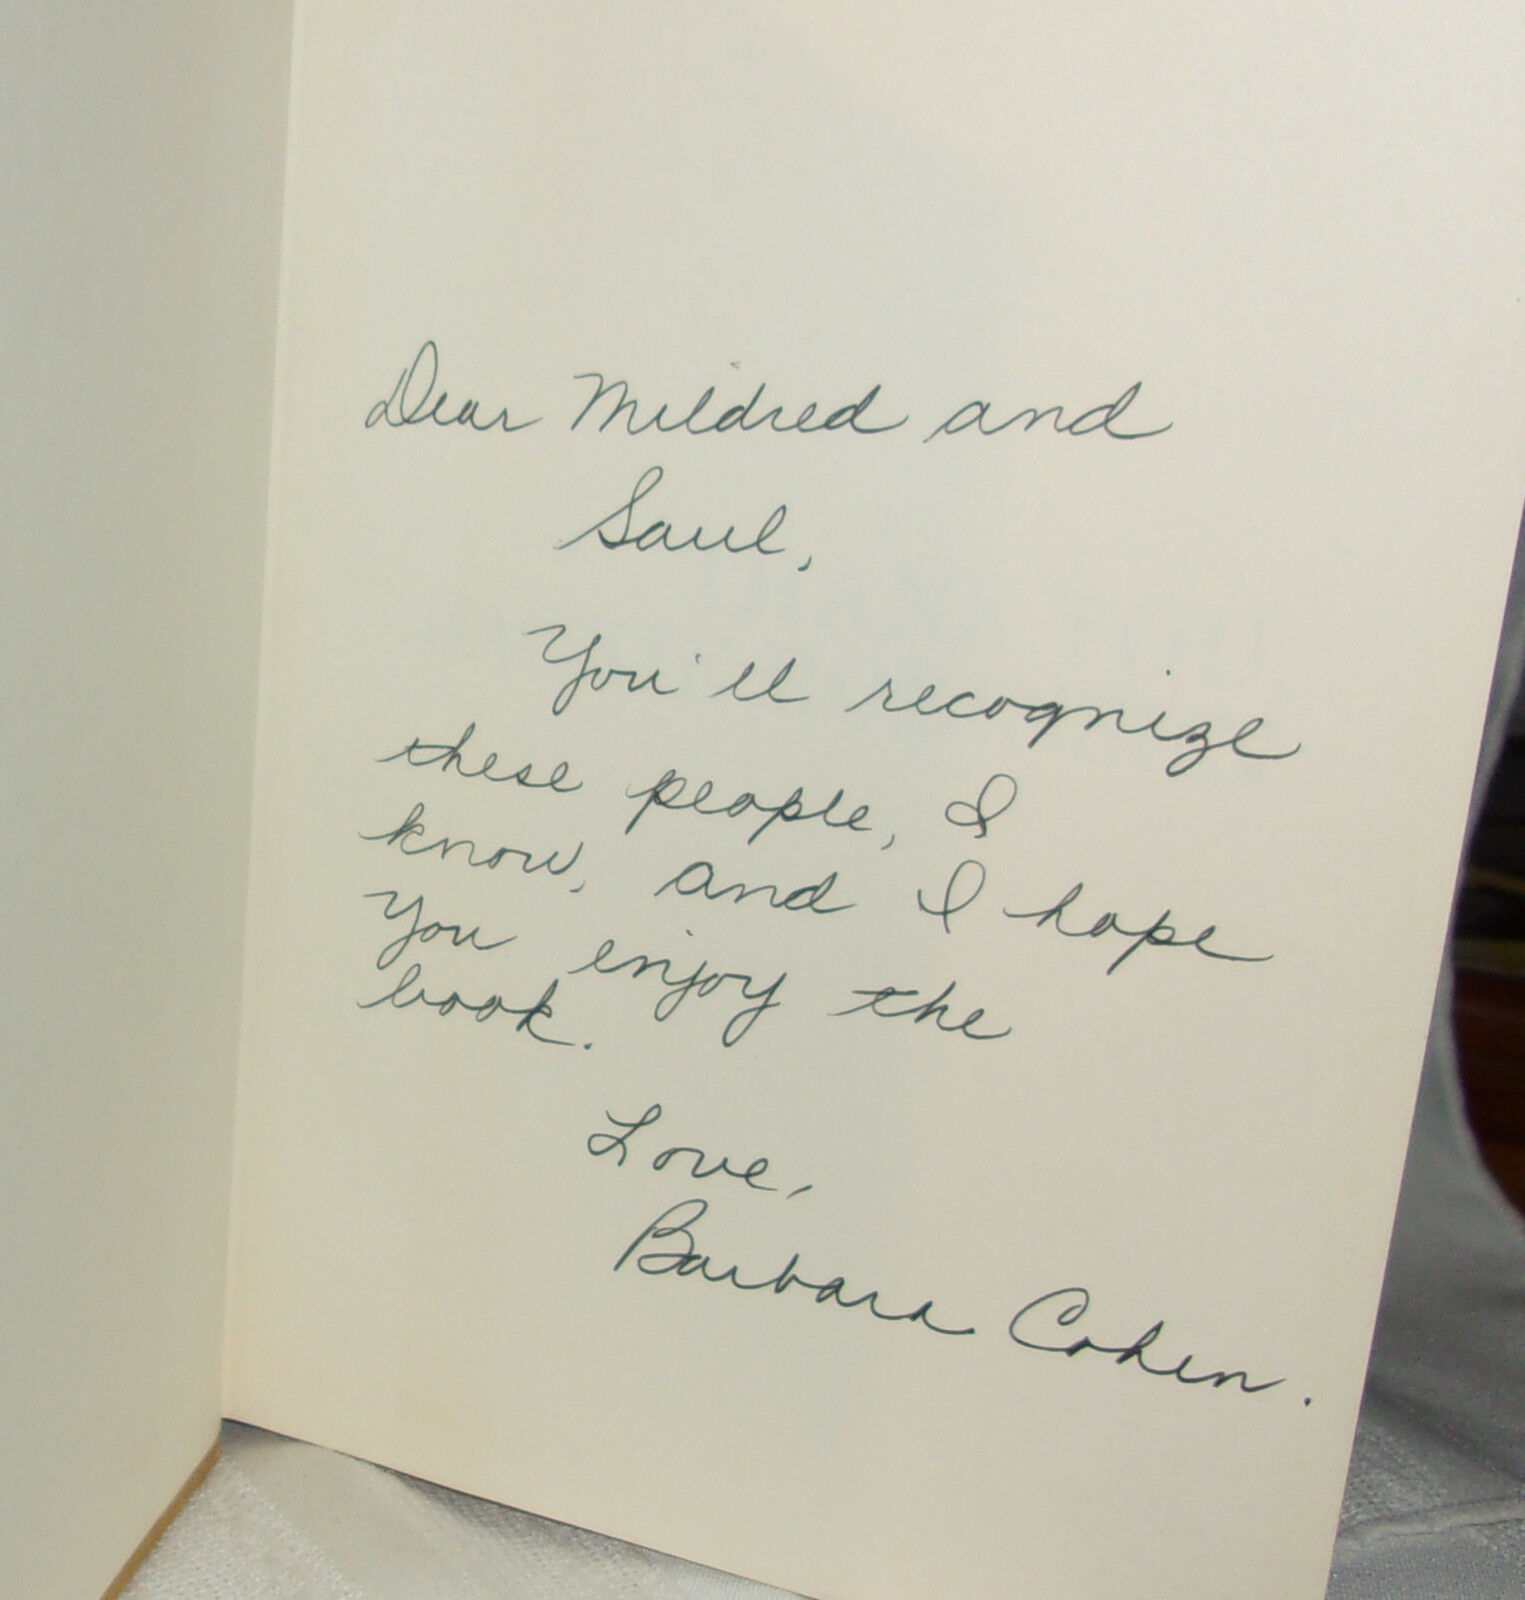 Dear Mildred and
Saul,
You'll recognize
these people, I
know, and I hope
you enjoy the
book.
Love,
Barbara Cohen.